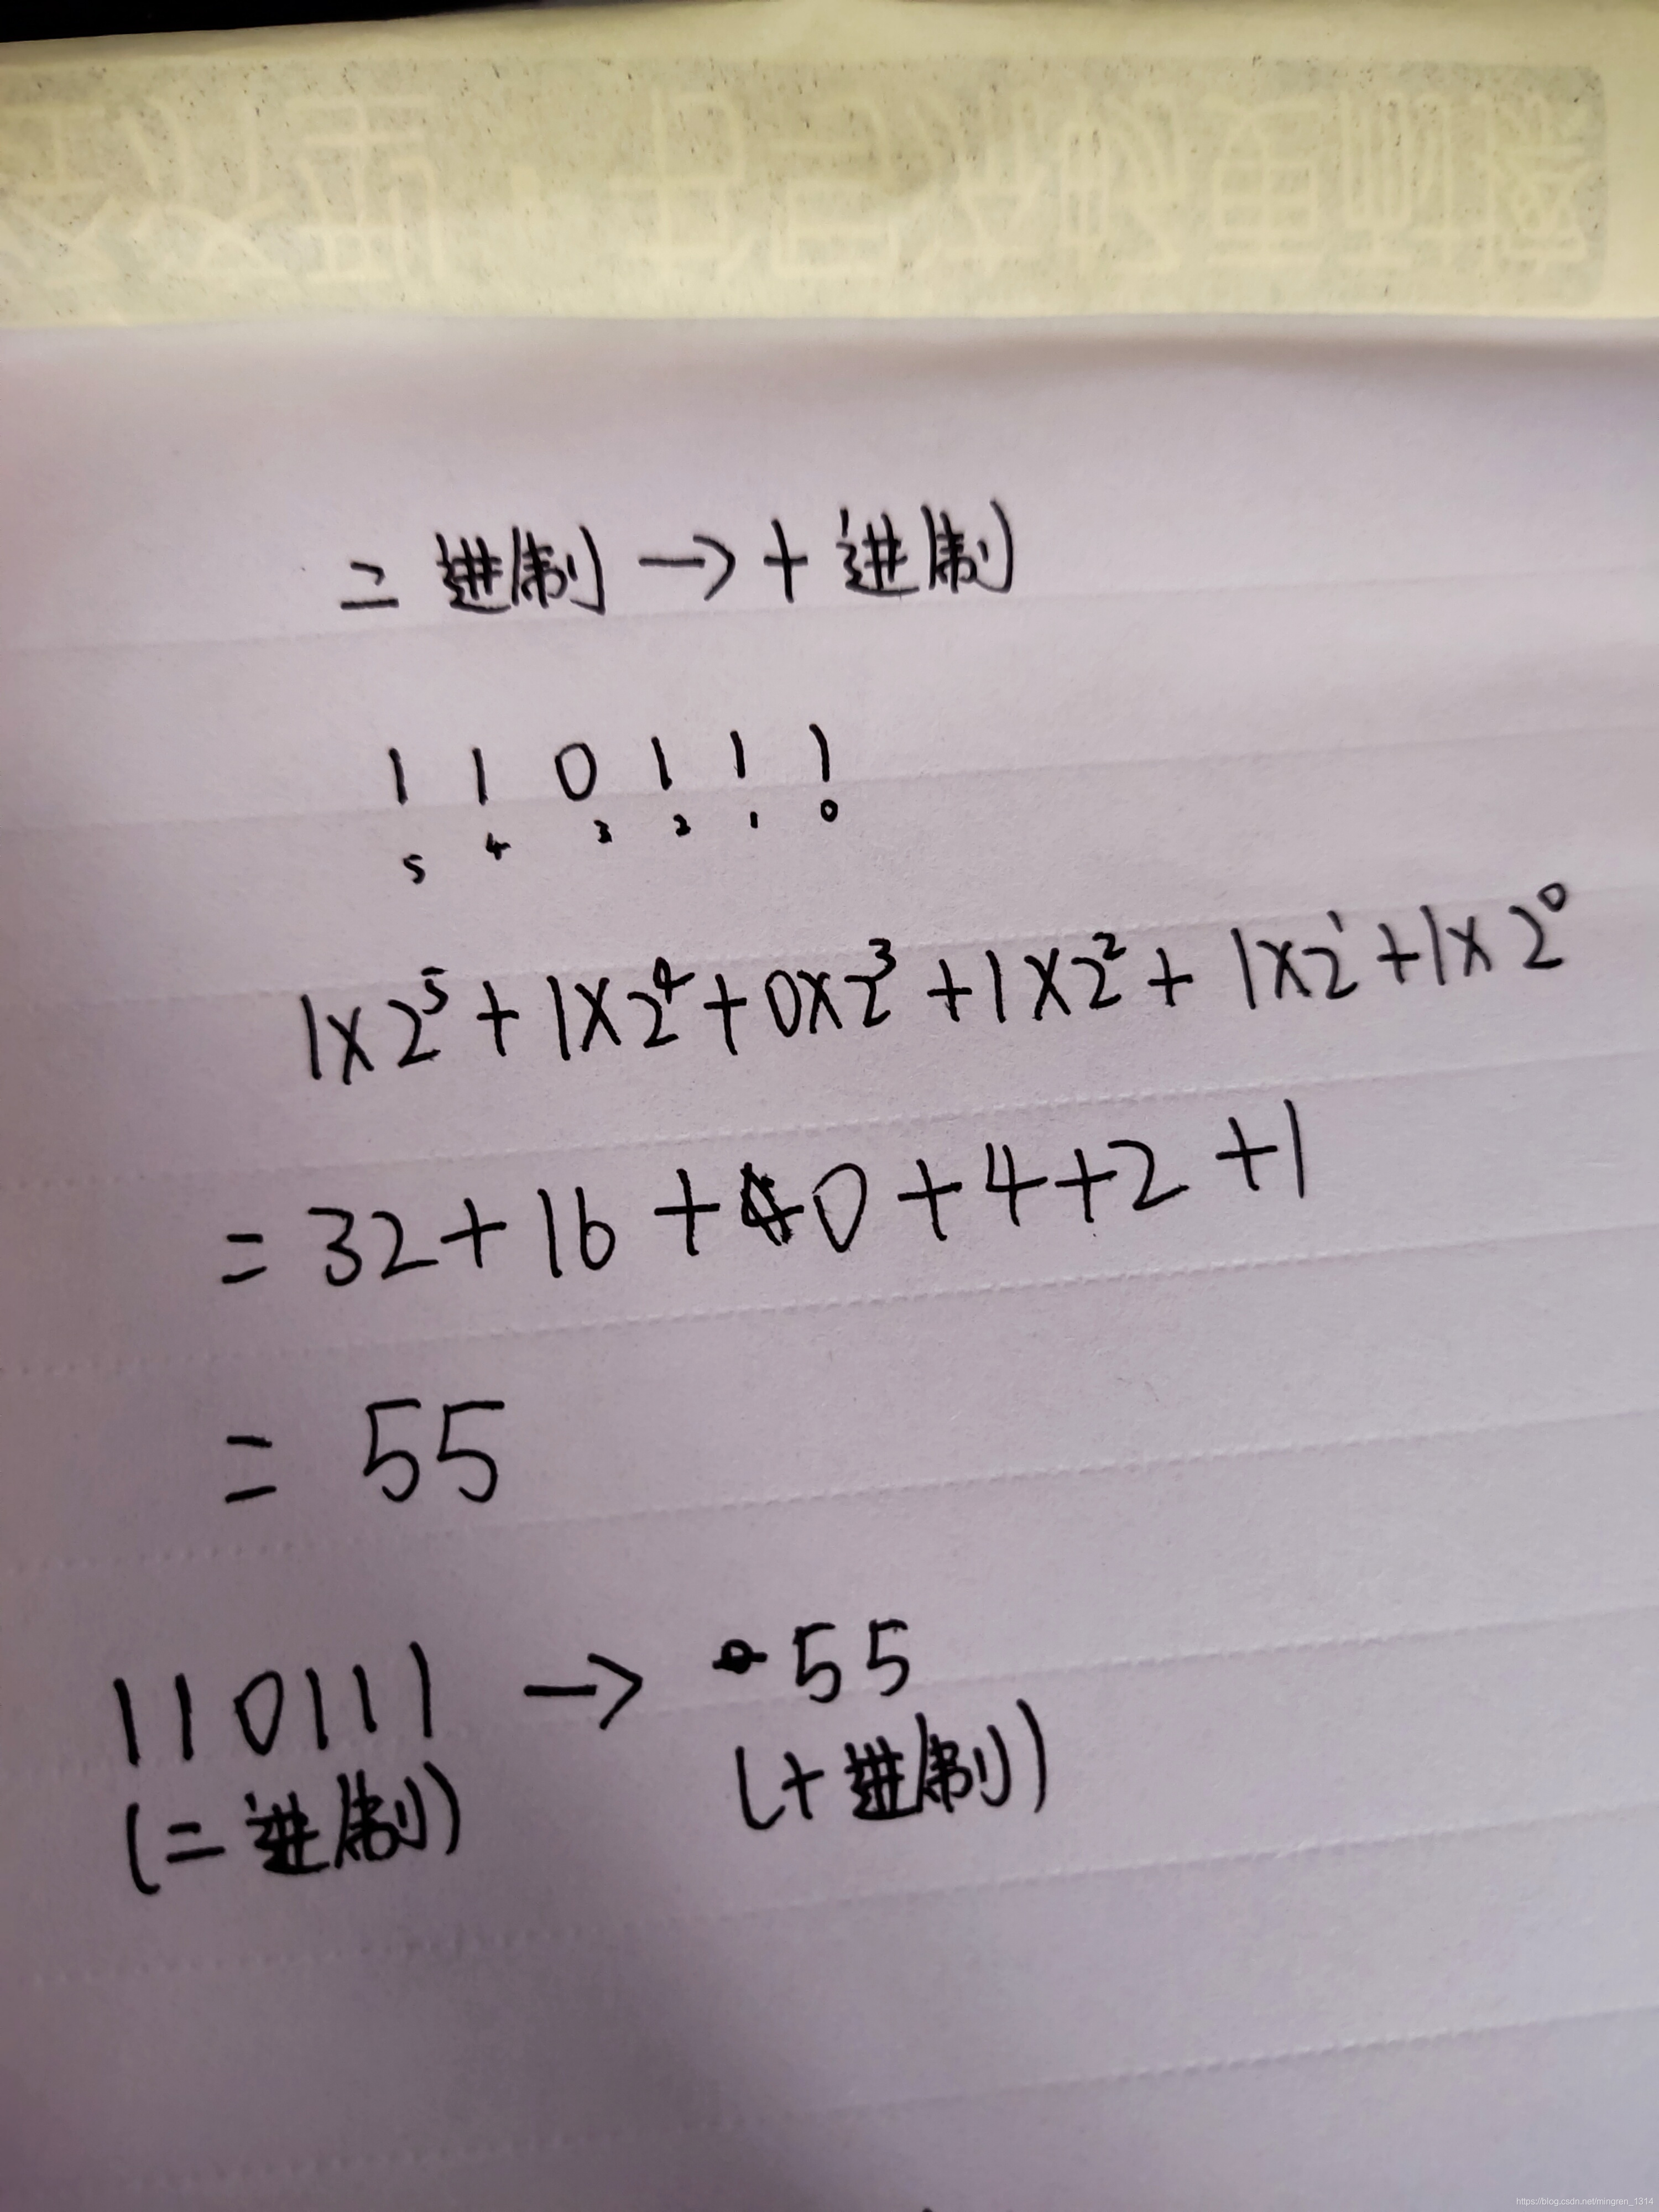 二进制 → 十进制
1 1 0 1 1 1
5 4 3 2 1 0
1×2⁵ + 1×2⁴ + 0×2³ + 1×2² + 1×2¹ + 1×2⁰
= 32 + 16 + 0 + 4 + 2 + 1
= 55
110111 → 55
(二进制) (十进制)
https://blog.csdn.net/mingren_1314